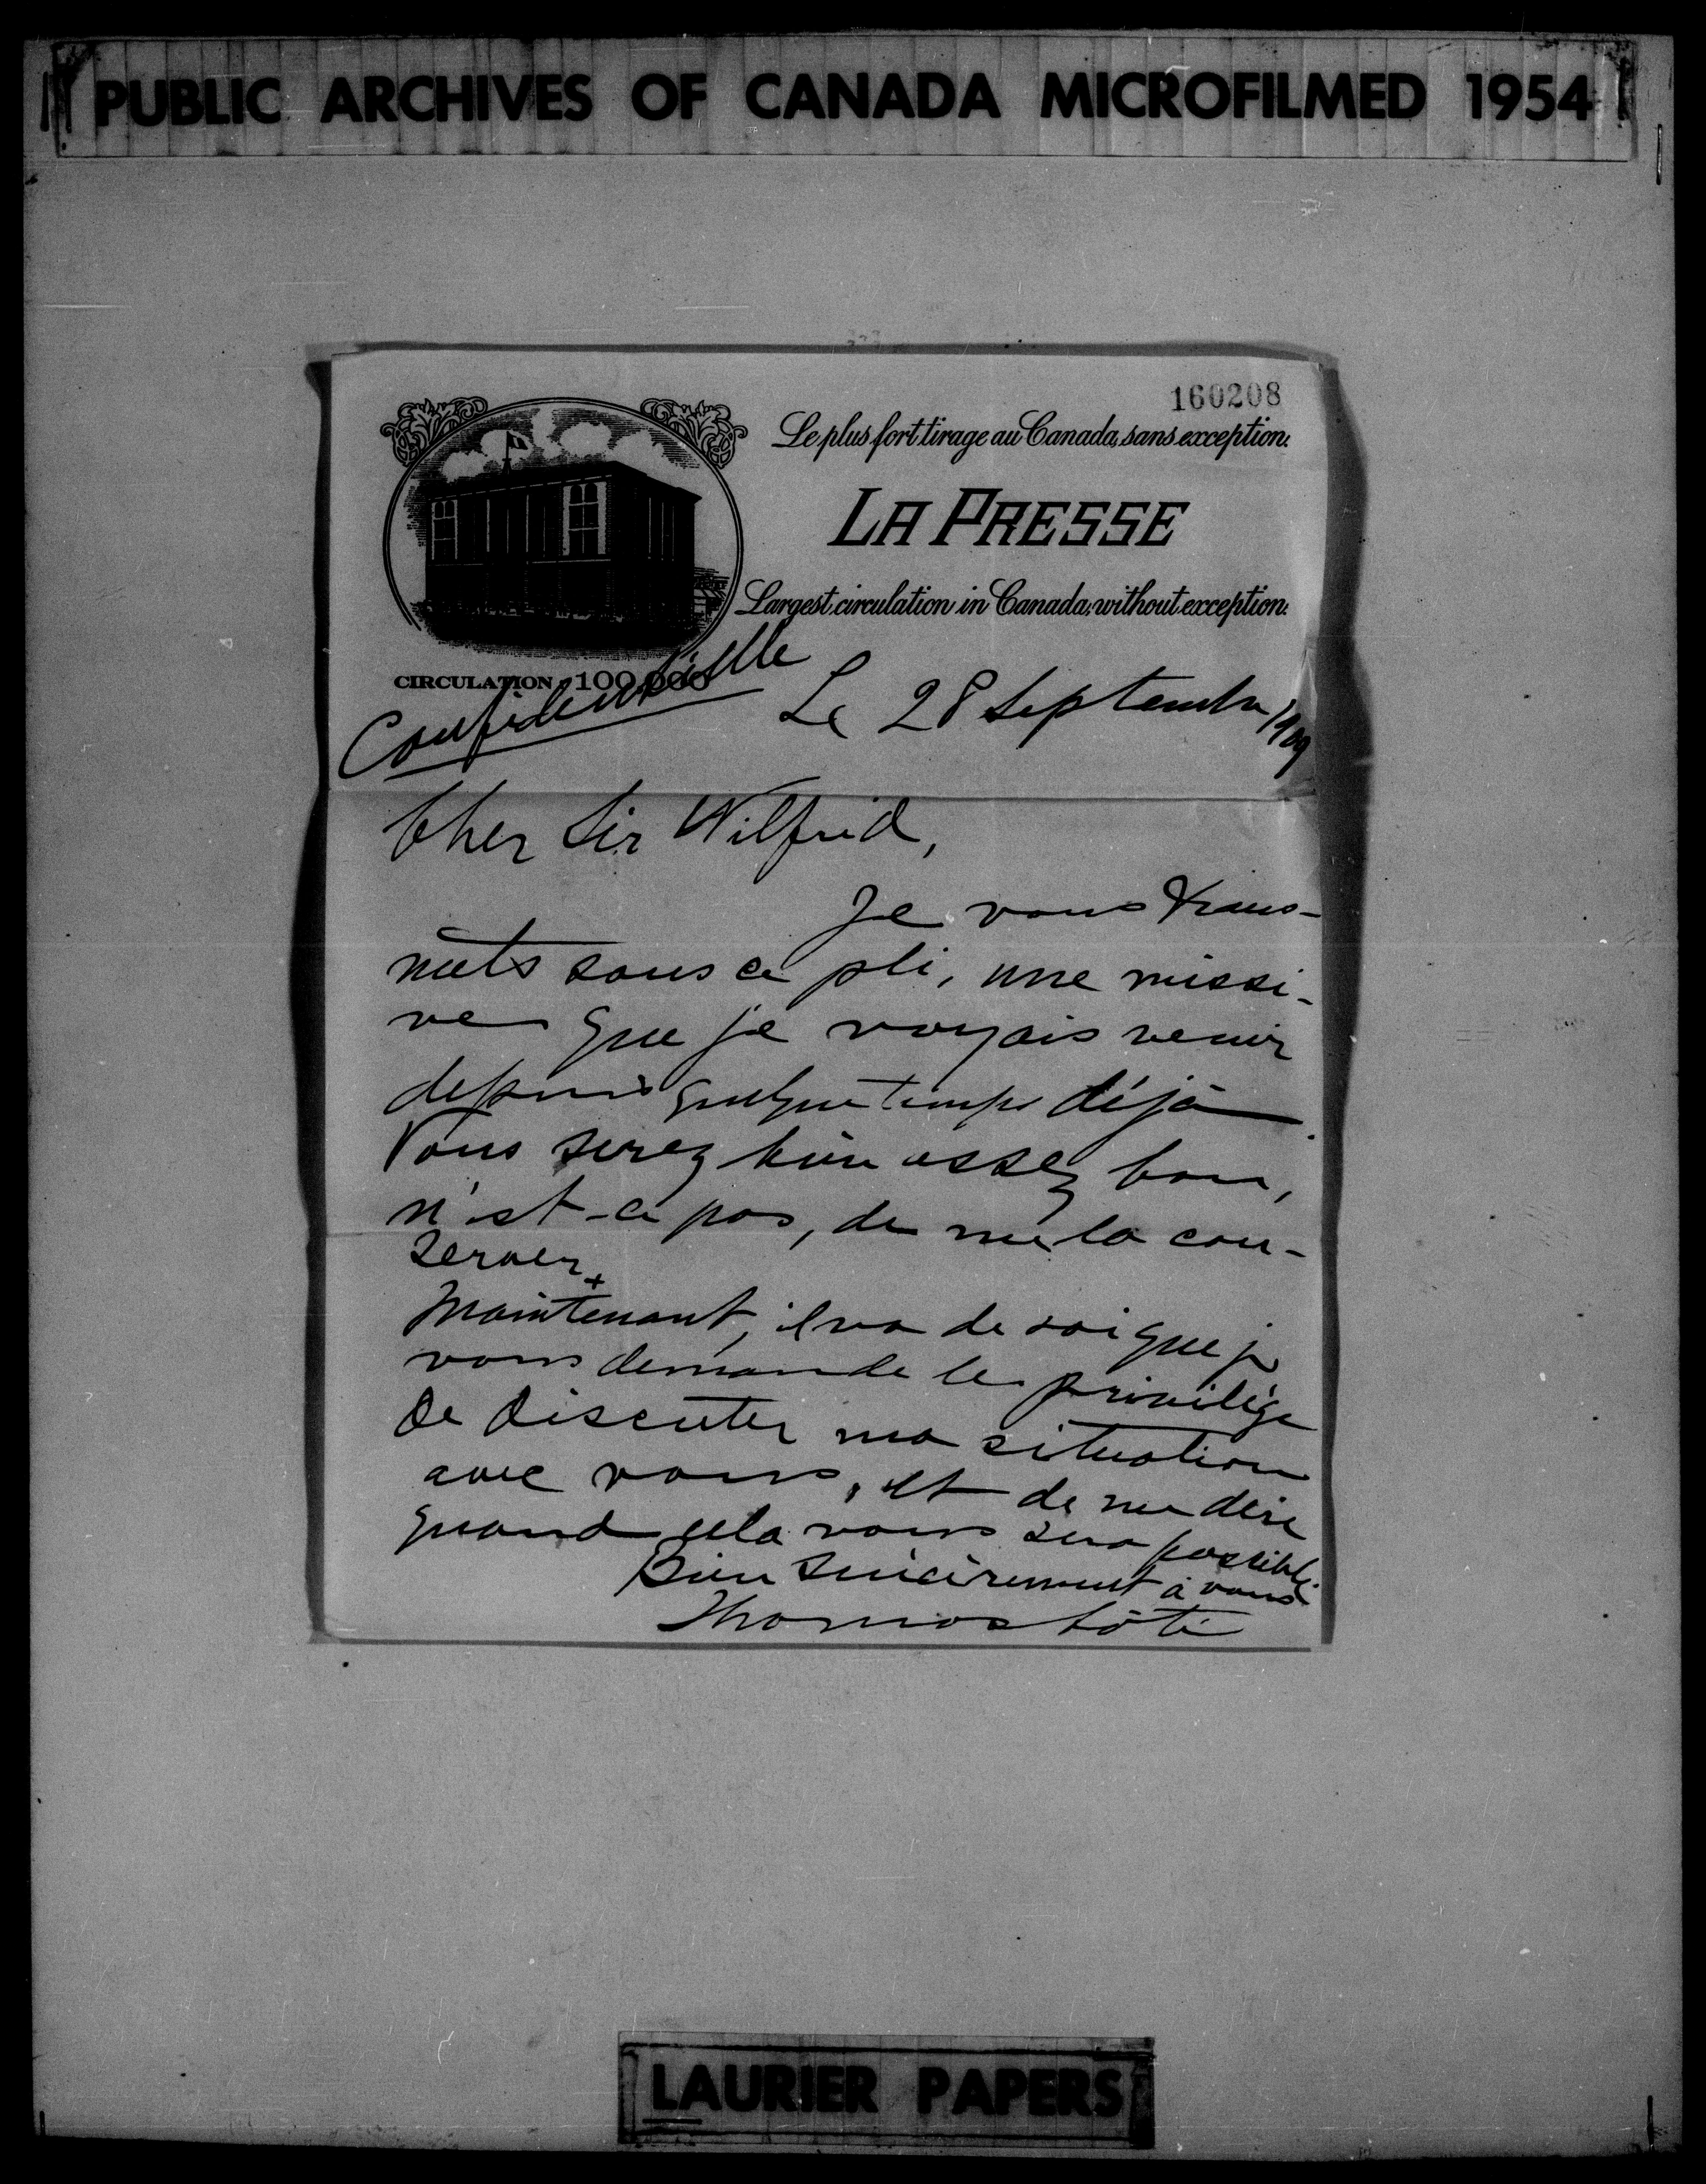 PUBLIC ARCHIVES OF CANADA MICROFILMED 1954
160208
Le plus fort tirage au Canada, sans exception.
LA PRESSE
Largest circulation in Canada, without exception.
CIRCULATION 100,000
Confidentielle
Le 28 Septembre/1909
Cher Sir Wilfrid,
Je vous trans-
mets sous ce pli, une missi-
ve que je voyais venir
depuis quelque temps déjà.
Vous serez bien assez bon,
n'est-ce pas, de me la con-
server.
Maintenant, il va de soi que je
vous demande le privilège
de discuter ma situation
avec vous, et de me dire
quand cela vous sera possible.
Bien sincèrement à vous
Thomas Côté
LAURIER PAPERS